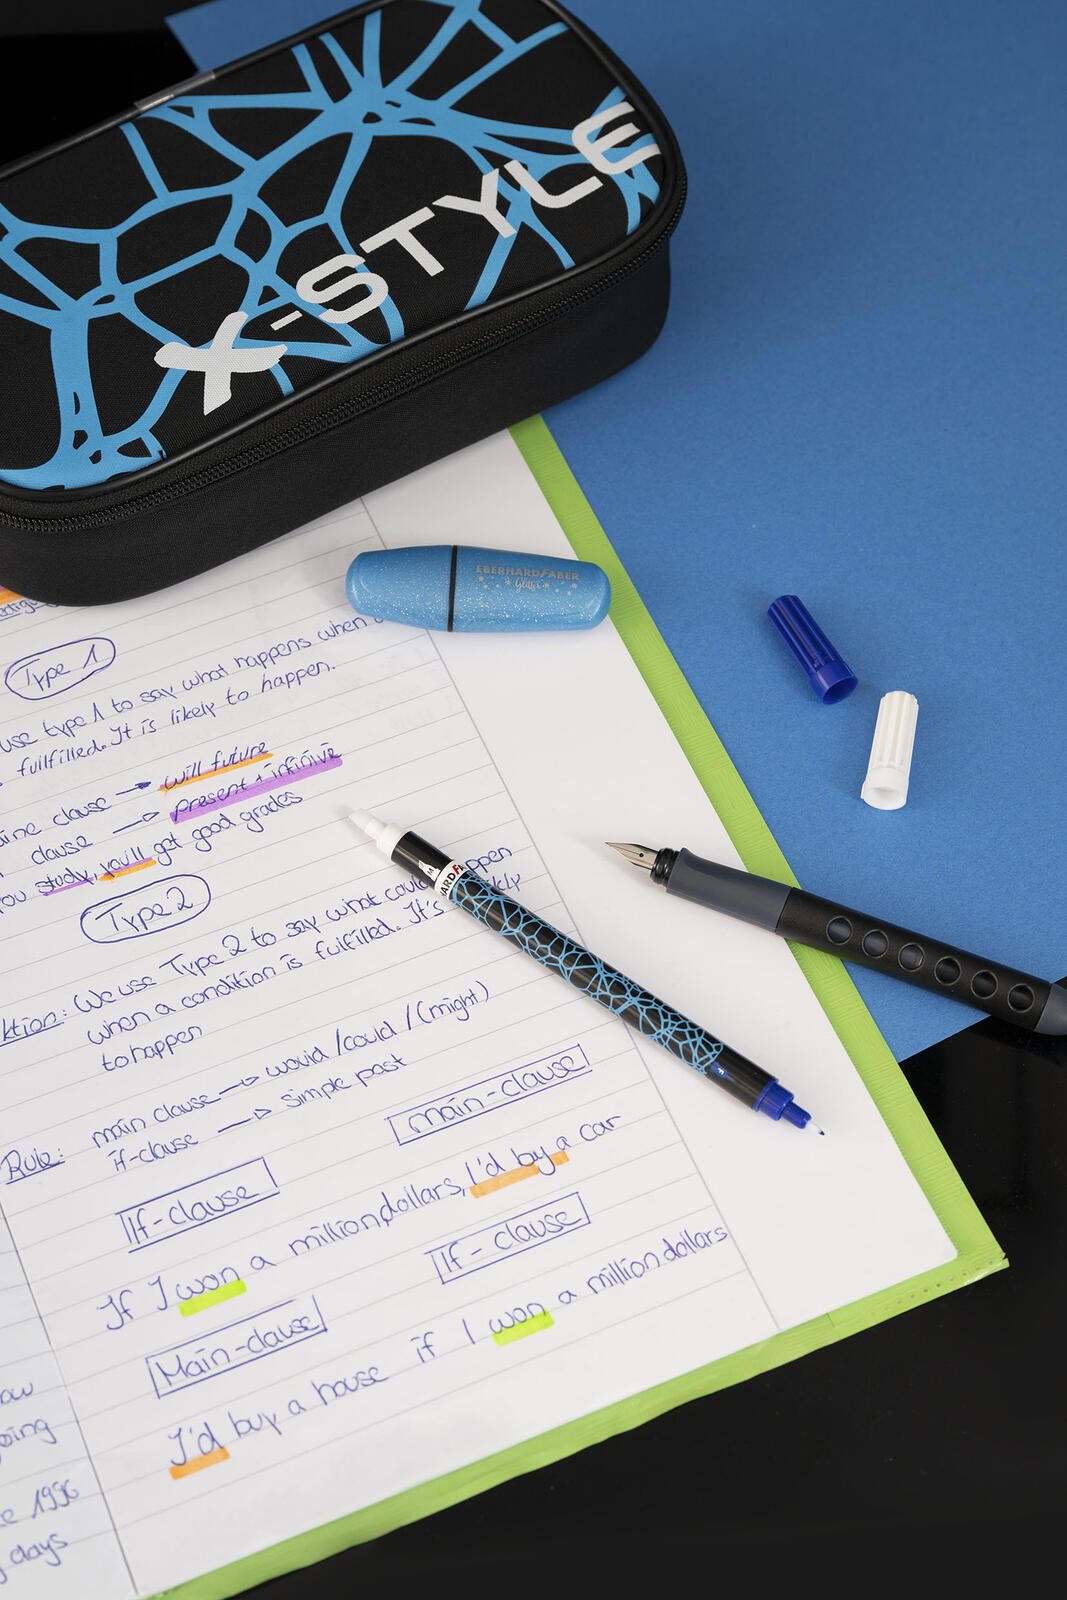 X-STYLE
EBERHARD FABER
Glitter
Type 1
use type 1 to say what happens when
fulfilled. It is likely to happen.
clause → will future
clause → present + infinive
you study, you'll get good grades
Type 2
We use Type 2 to say what could happen
when a condition is fulfilled. It's
to happen
Rule: main clause → would / could / (might)
if-clause → simple past
If-clause main-clause
If I won a million dollars, I'd by a car
Main-clause If-clause
I'd buy a house if I won a million dollars
1996
days